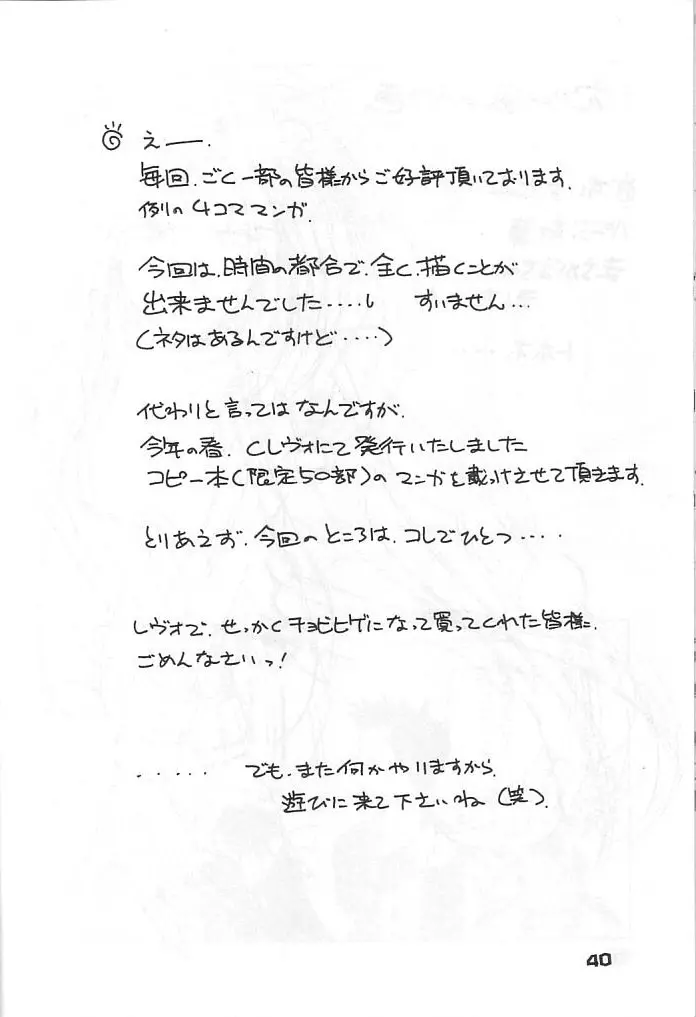 えー.
毎回、ごく一部の皆様からご好評頂いております、
例の4コママンガ、
今回は、時間の都合で、全く、描くことが
出来ませんでした・・・・し すいません・・・
(ネタはあるんですけど・・・・)
代わりと言ってはなんですが、
今年の春、Cレヴォにて発行いたしました
コピー本(限定50部)のマンガを載っけさせて頂きます、
とりあえず、今回のところは、コレでひとつ・・・・
レヴォで、せっかくチョビヒゲになって買ってくれた皆様、
ごめんなさいっ!
・・・・・ でも、また何かやりますから、
遊びに来て下さいね(笑)、
40